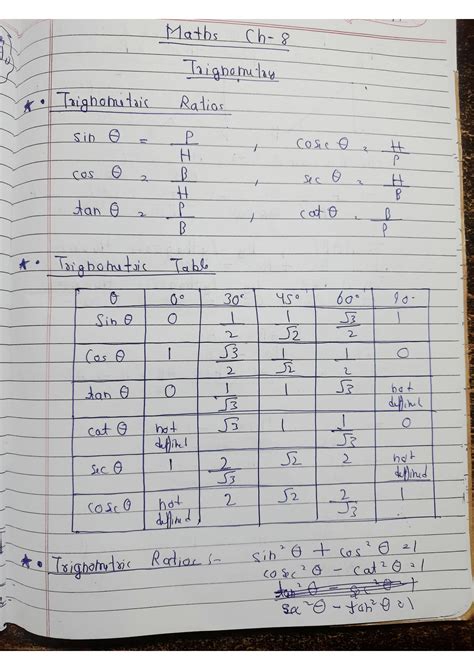 Maths Ch-8
Trignometry
★ • Trignometric Ratios
sin θ = P/H , cosec θ = H/P
cos θ = B/H , sec θ = H/B
tan θ = P/B , cat θ = B/P
★ • Trignometric Table
θ 0° 30° 45° 60° 90°
Sin θ 0 1/2 1/√2 √3/2 1
Cos θ 1 √3/2 1/√2 1/2 0
tan θ 0 1/√3 1 √3 not defined
cat θ not defined √3 1 1/√3 0
sec θ 1 2/√3 √2 2 not defined
cosec θ not defined 2 √2 2/√3 1
★ • Trignometric Ratios :- sin² θ + cos² θ = 1
cosec² θ - cat² θ = 1
sec² θ - tan² θ = 1